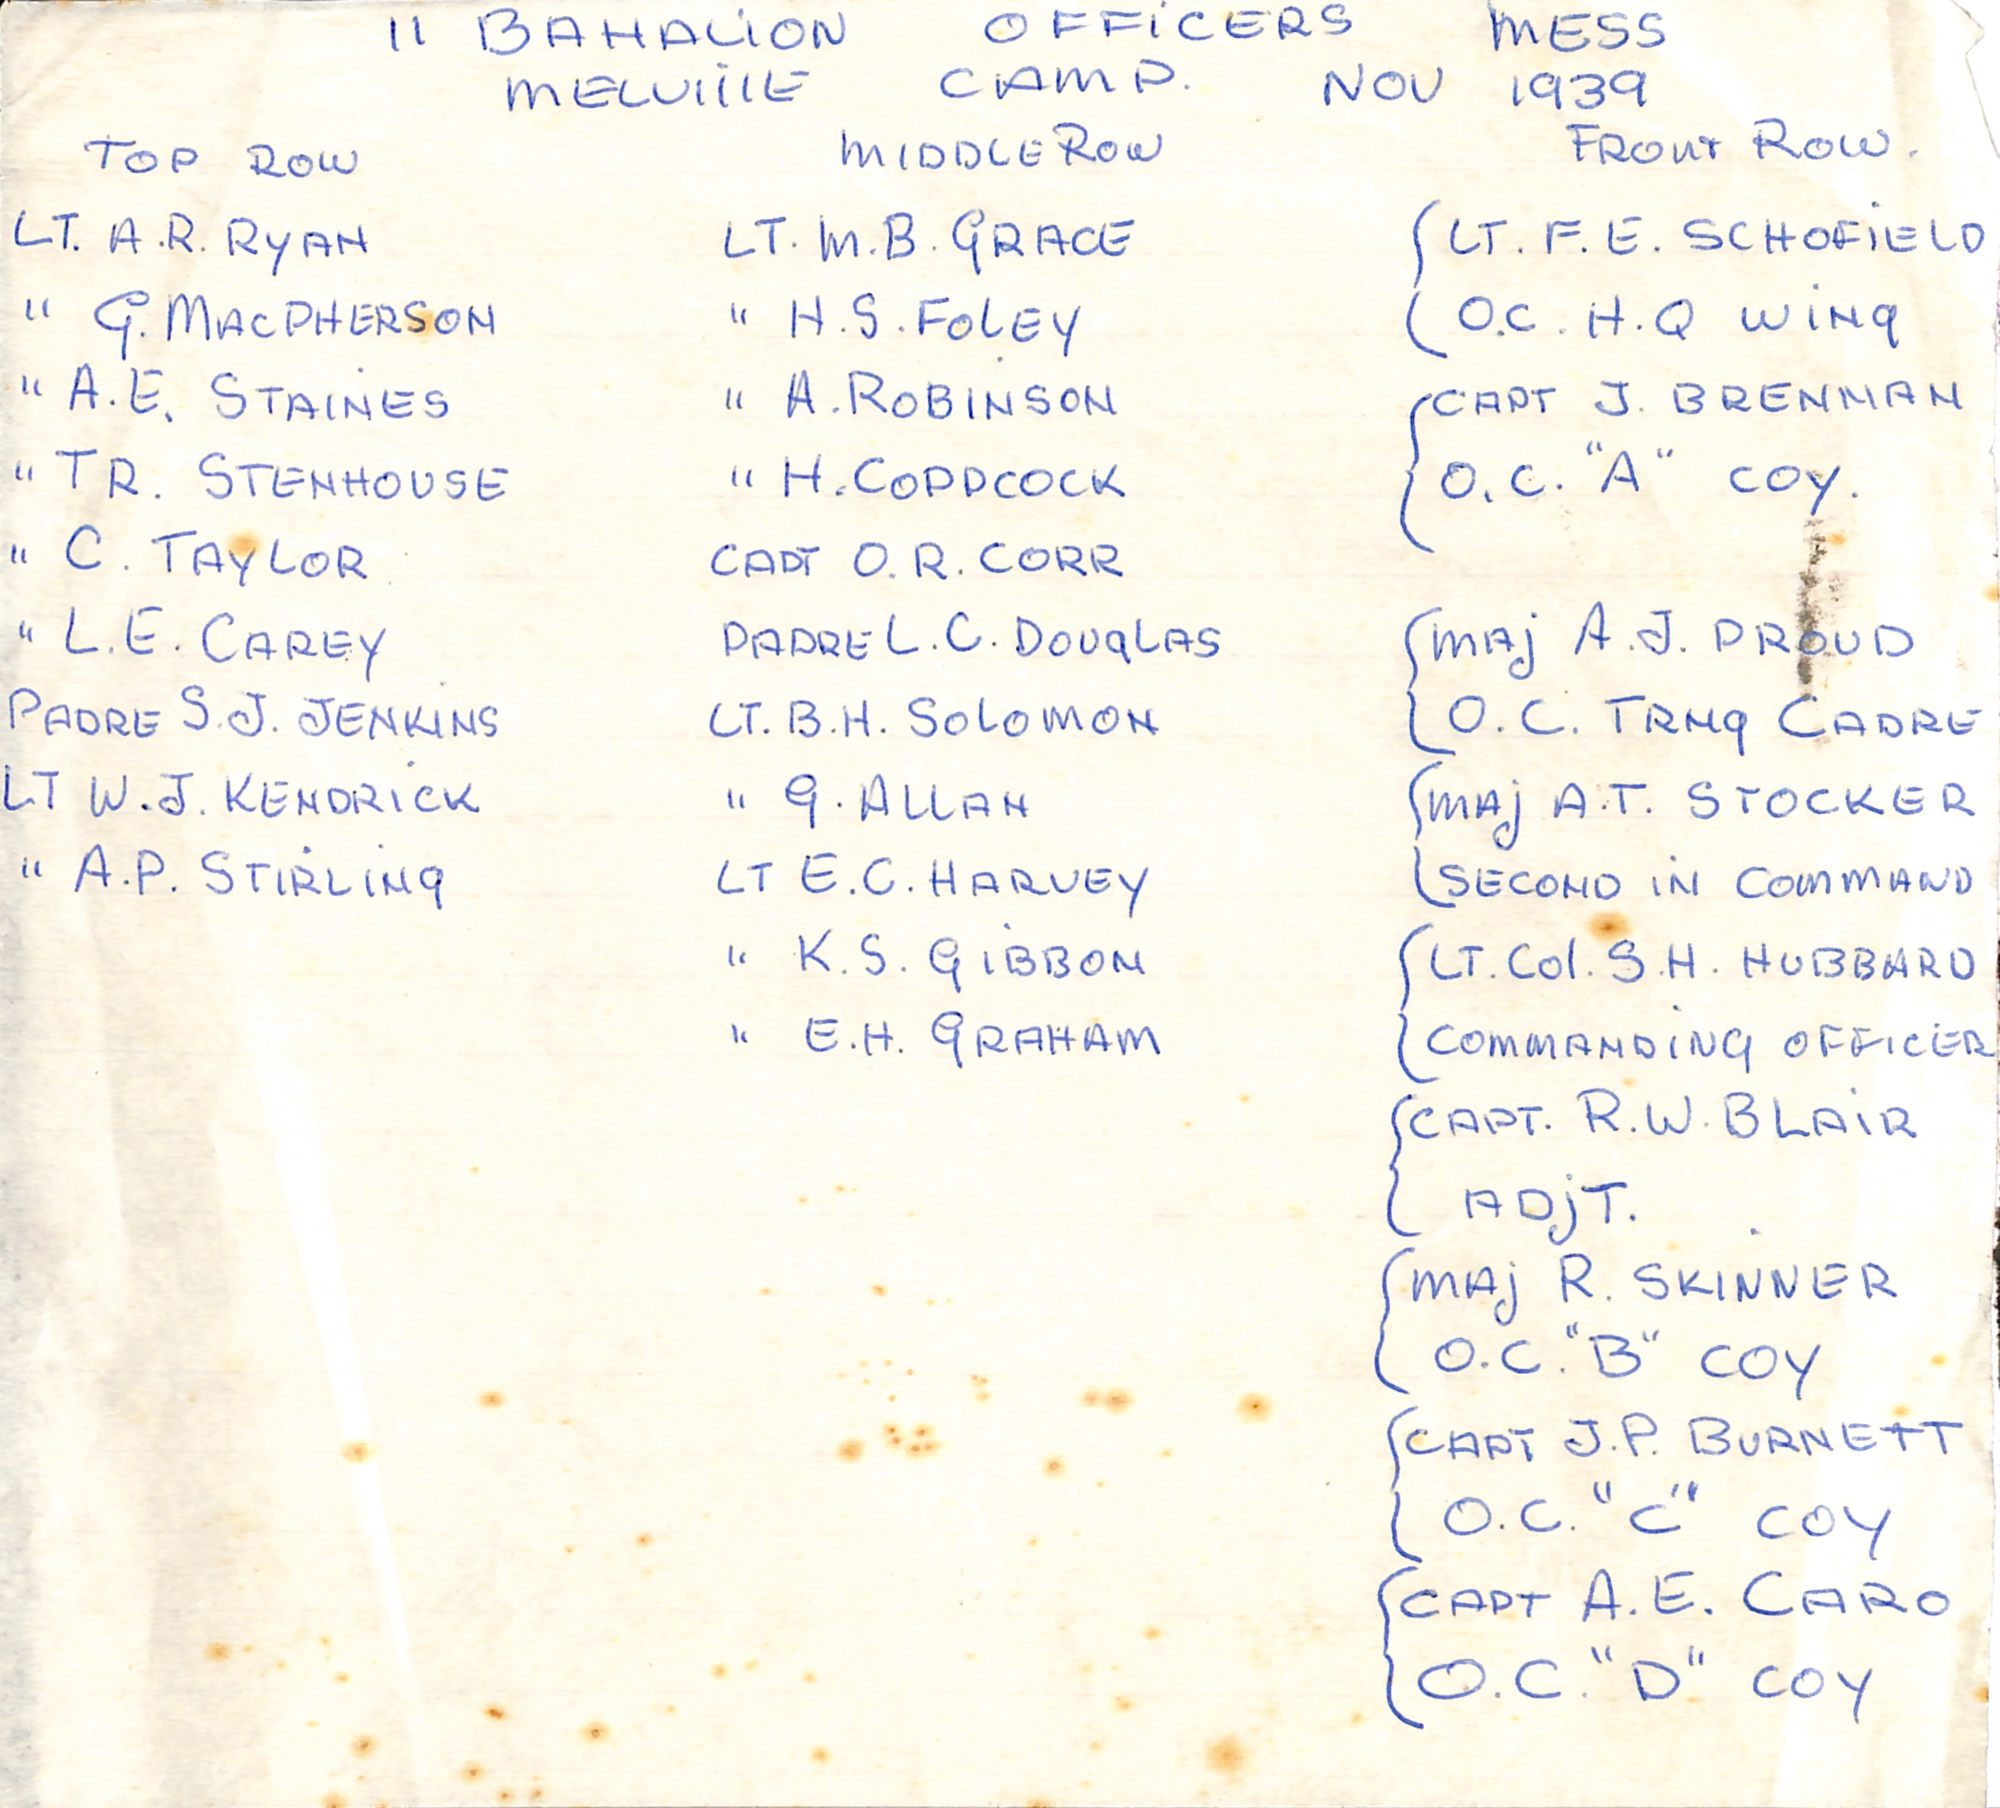 11 BATTALION OFFICERS MESS
MELVILLE CAMP. NOV 1939
TOP ROW
LT. A.R. RYAN
" G. MACPHERSON
" A.E. STAINES
" T.R. STENHOUSE
" C. TAYLOR
" L.E. CAREY
PADRE S.J. JENKINS
LT W.J. KENDRICK
" A.P. STIRLING
MIDDLE ROW
LT. M.B. GRACE
" H.S. FOLEY
" A. ROBINSON
" H. COPPCOCK
CAPT O.R. CORR
PADRE L.C. DOUGLAS
LT. B.H. SOLOMON
" G. ALLAN
LT E.C. HARVEY
" K.S. GIBBON
" E.H. GRAHAM
FRONT ROW.
LT. F.E. SCHOFIELD
O.C. H.Q WING
CAPT J. BRENNAN
O.C. "A" COY.
MAJ A.J. PROUD
O.C. TRNG CADRE
MAJ A.T. STOCKER
SECOND IN COMMAND
LT. COL. S.H. HUBBARD
COMMANDING OFFICER
CAPT. R.W. BLAIR
ADJT.
MAJ R. SKINNER
O.C. "B" COY
CAPT J.P. BURNETT
O.C. "C" COY
CAPT A.E. CARO
O.C. "D" COY